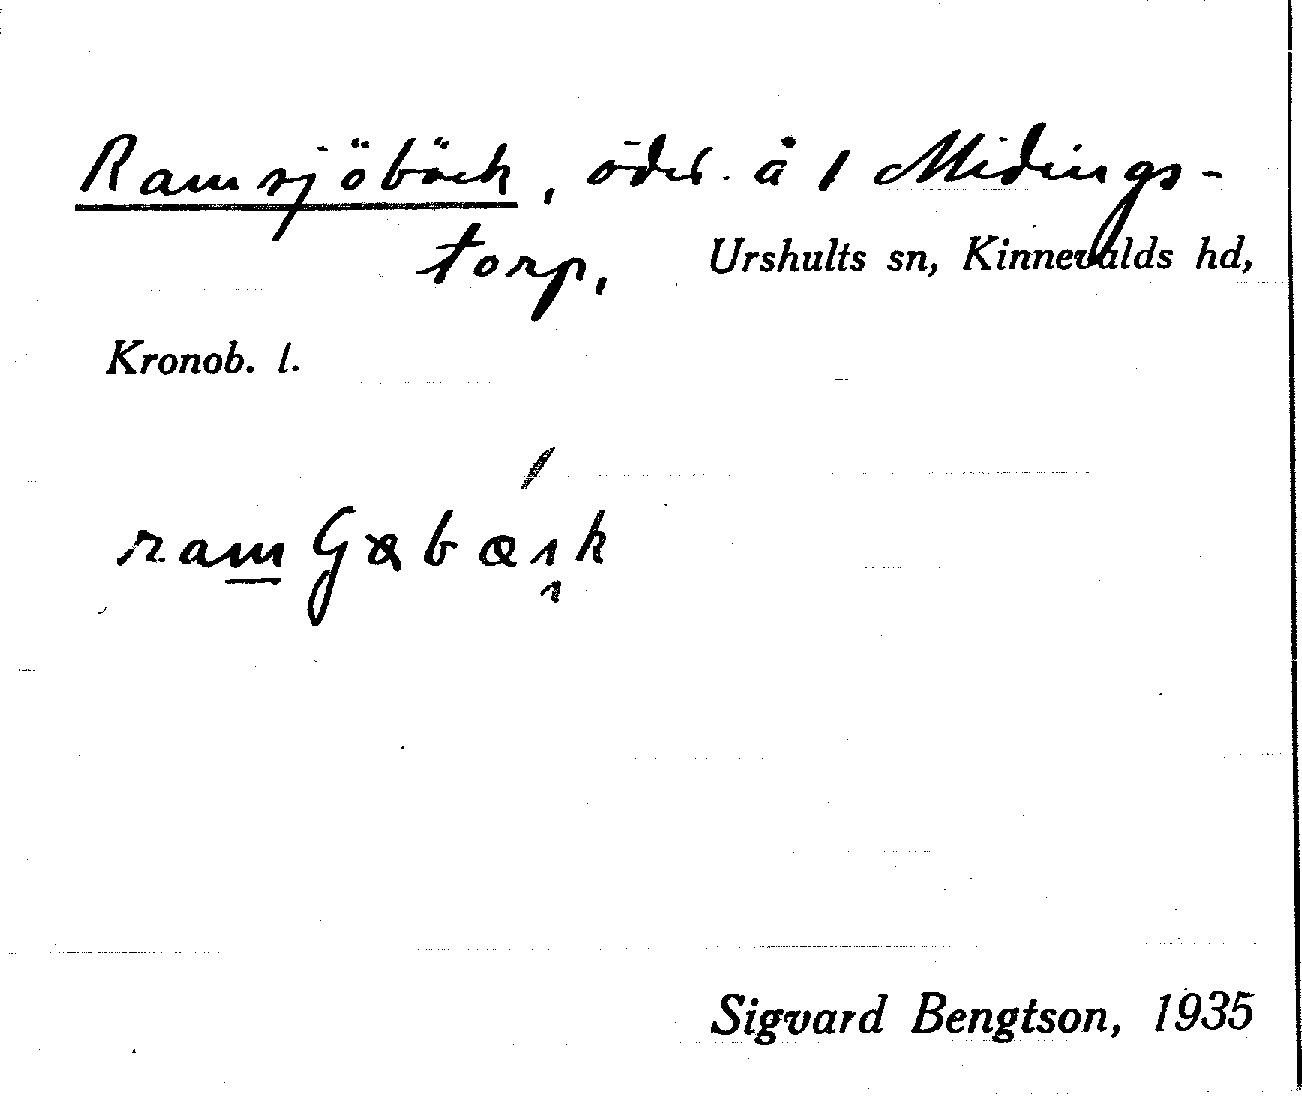 Ramsjöbäck, ödel. å 1 Midings-
torp, Urshults sn, Kinnevalds hd,
Kronob. l.
Sigvard Bengtson, 1935